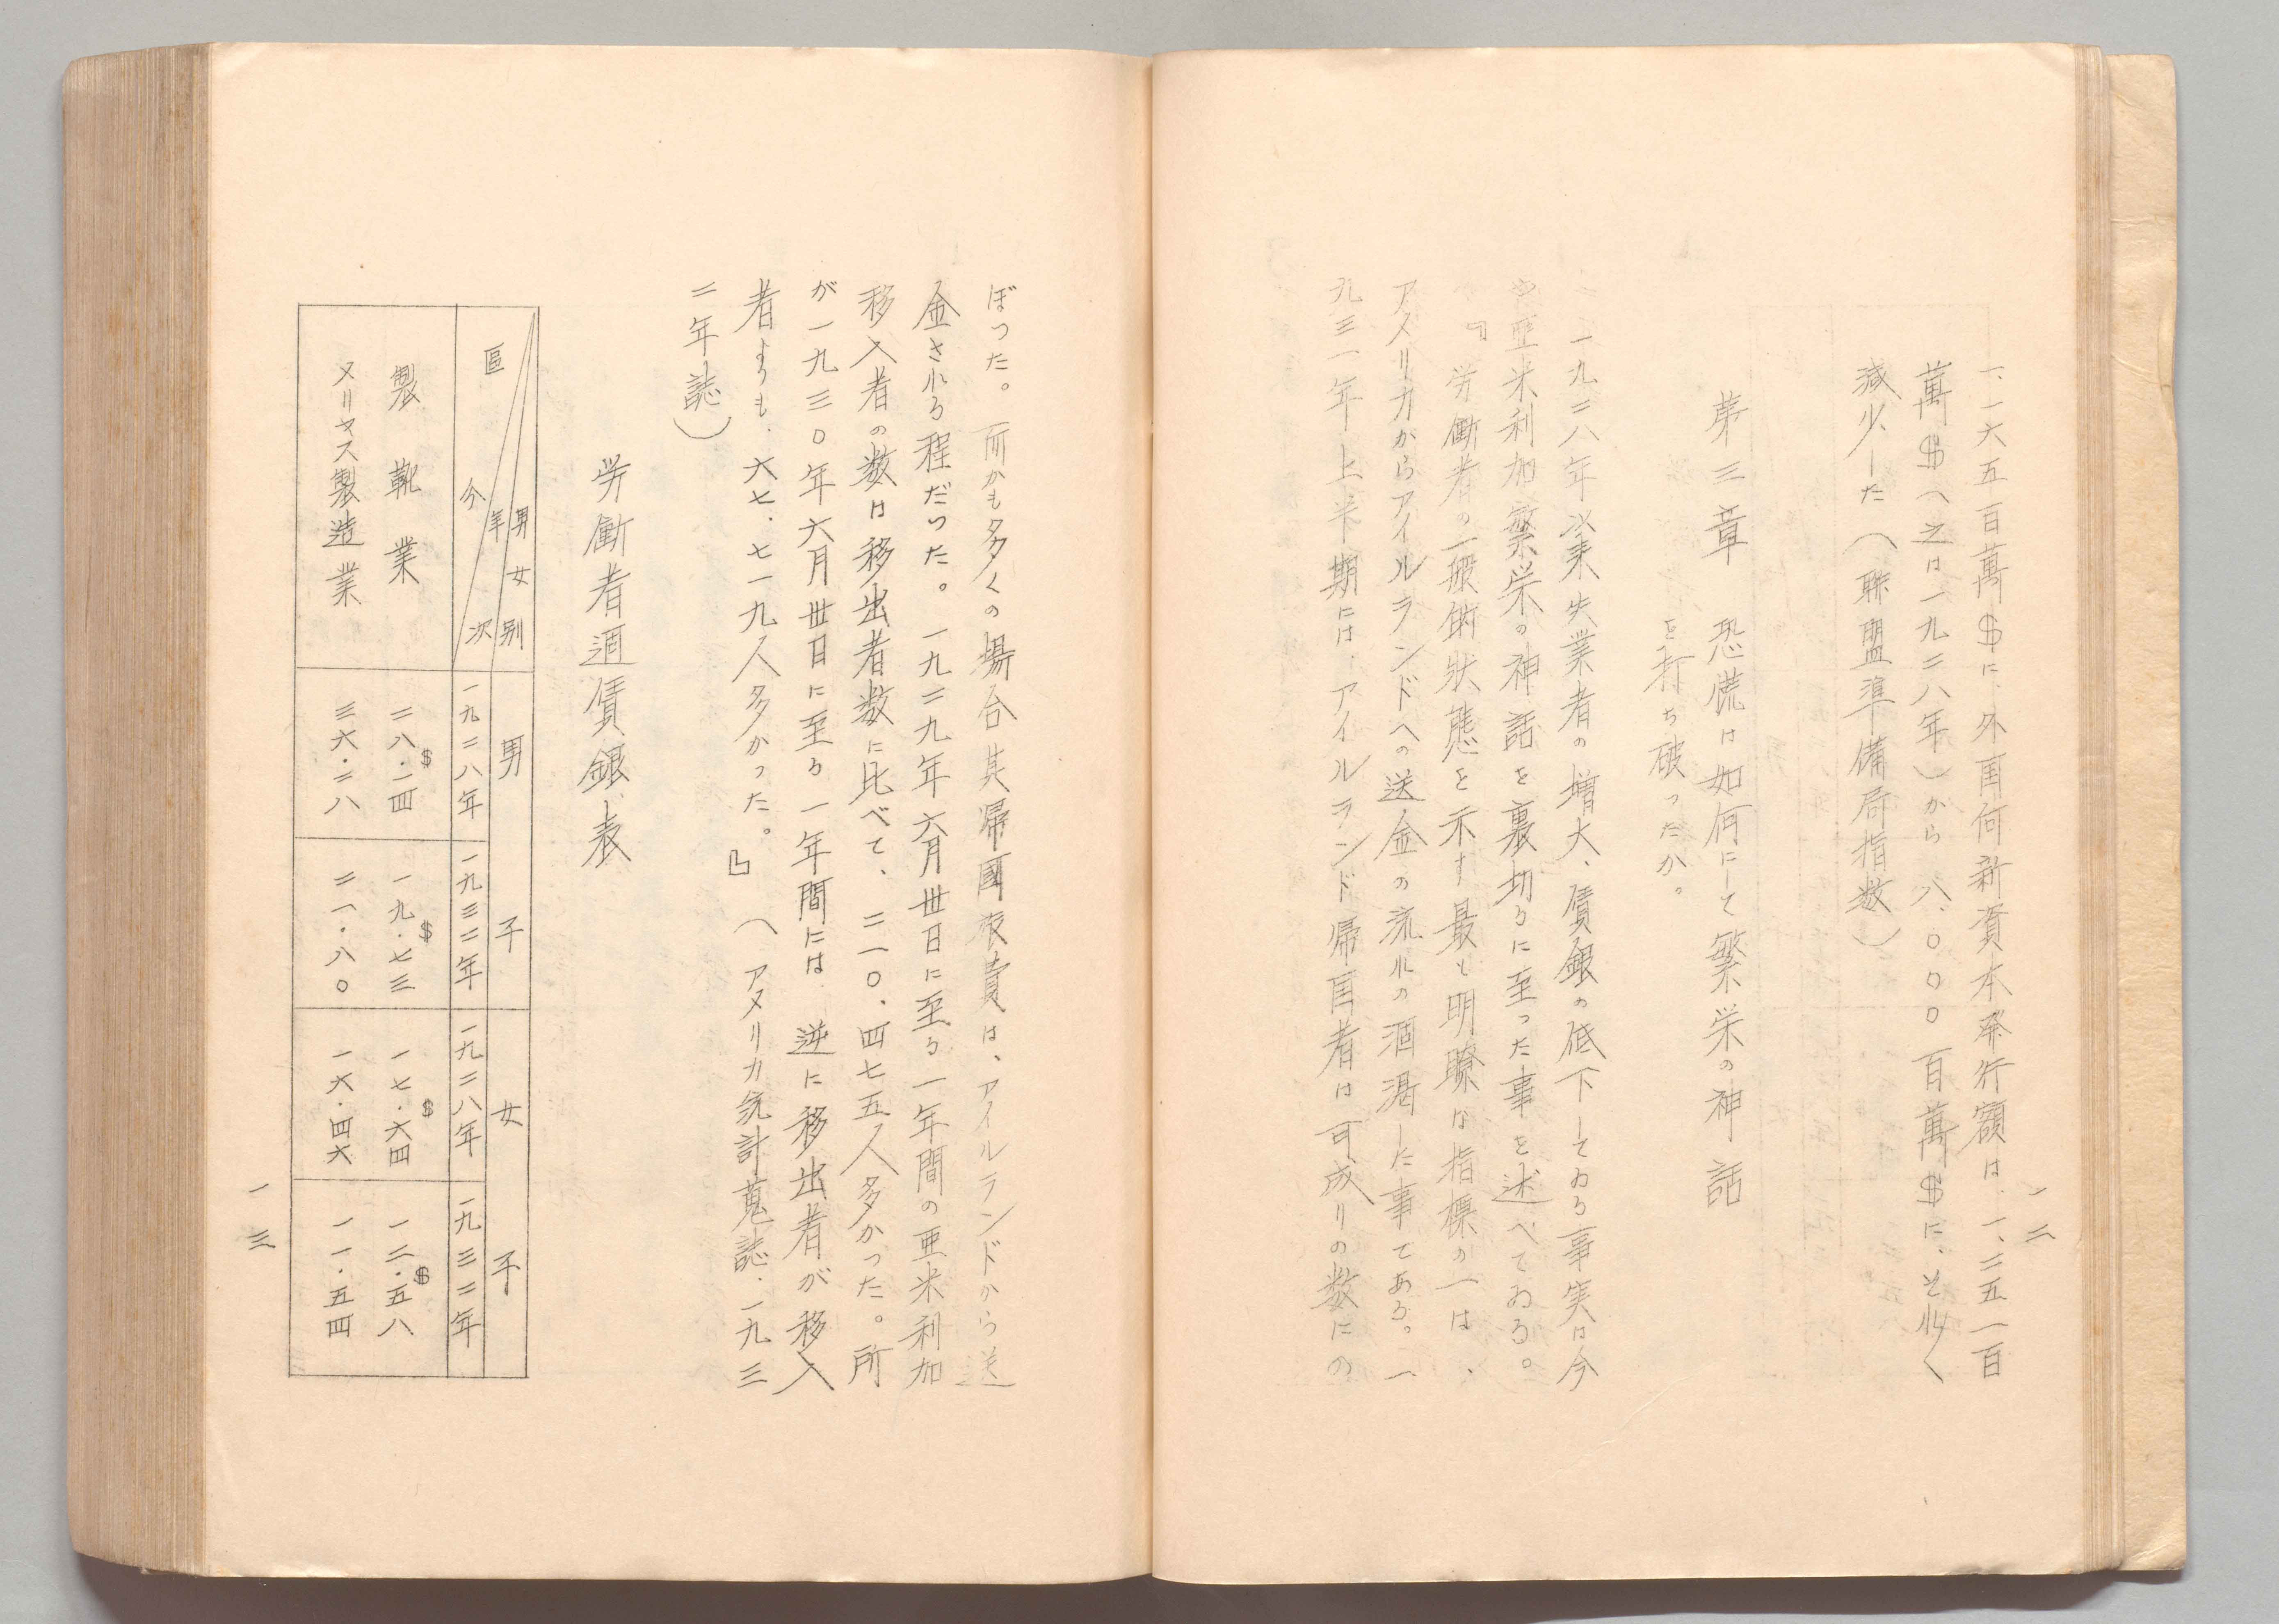 一二
一、一六五百萬$に、外国何新資本発行額は、一、二五一百
萬$（之は一九二八年）から、八、〇〇〇百萬$に、そ少く
減少した（聯盟準備局指数）
第三章　恐慌は如何にして繁栄の神話
を打ち破ったか。
一九二八年以来失業者の増大、賃銀の低下してゐる事実は今
や亜米利加繁栄の神話を裏切るに至った事を述べてゐる。
『労働者の一般的状態を示す最も明瞭な指標の一は、
アメリカからアイルランドへの送金の流れの涸渇した事である。一
九三一年上半期には、アイルランド帰国者は可成りの数にの
ぼった。而かも多くの場合其帰國旅費は、アイルランドから送
金される程だった。一九二九年六月卅日に至る一年間の亜米利加
移入者の数は移出者数に比べて、二一〇．四七五人多かった。所
が一九三〇年六月卅日に至る一年間には、逆に移出者が移入
者よりも、六七、七一九人多かった。』（アメリカ統計蒐誌、一九三
二年誌）
労働者週賃銀表
男女別
年次
區分
男子
女子
一九二八年　一九三二年　一九二八年　一九三二年
製靴業　二八．一四$　一九．七三$　一七．六四$　一二．五八$
メリヤス製造業　三六．二八　二一．八〇　一六．四六　一一．五四
一三